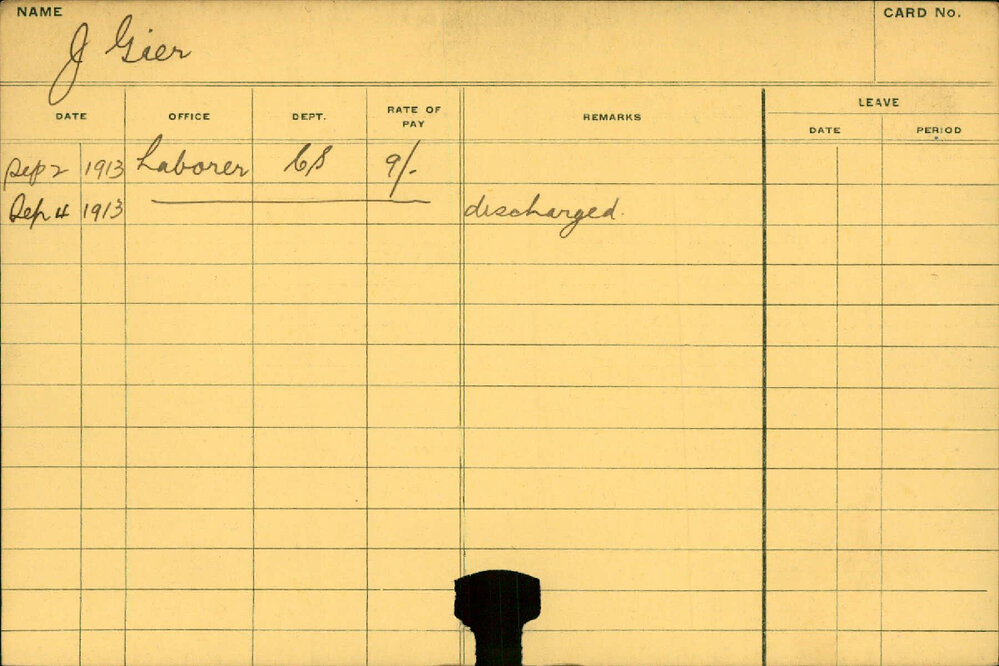 NAME CARD No.
J Gier
DATE OFFICE DEPT. RATE OF PAY REMARKS LEAVE
DATE PERIOD
Sep 2 1913 Laborer 9/-
Sep 4 1913 discharged.